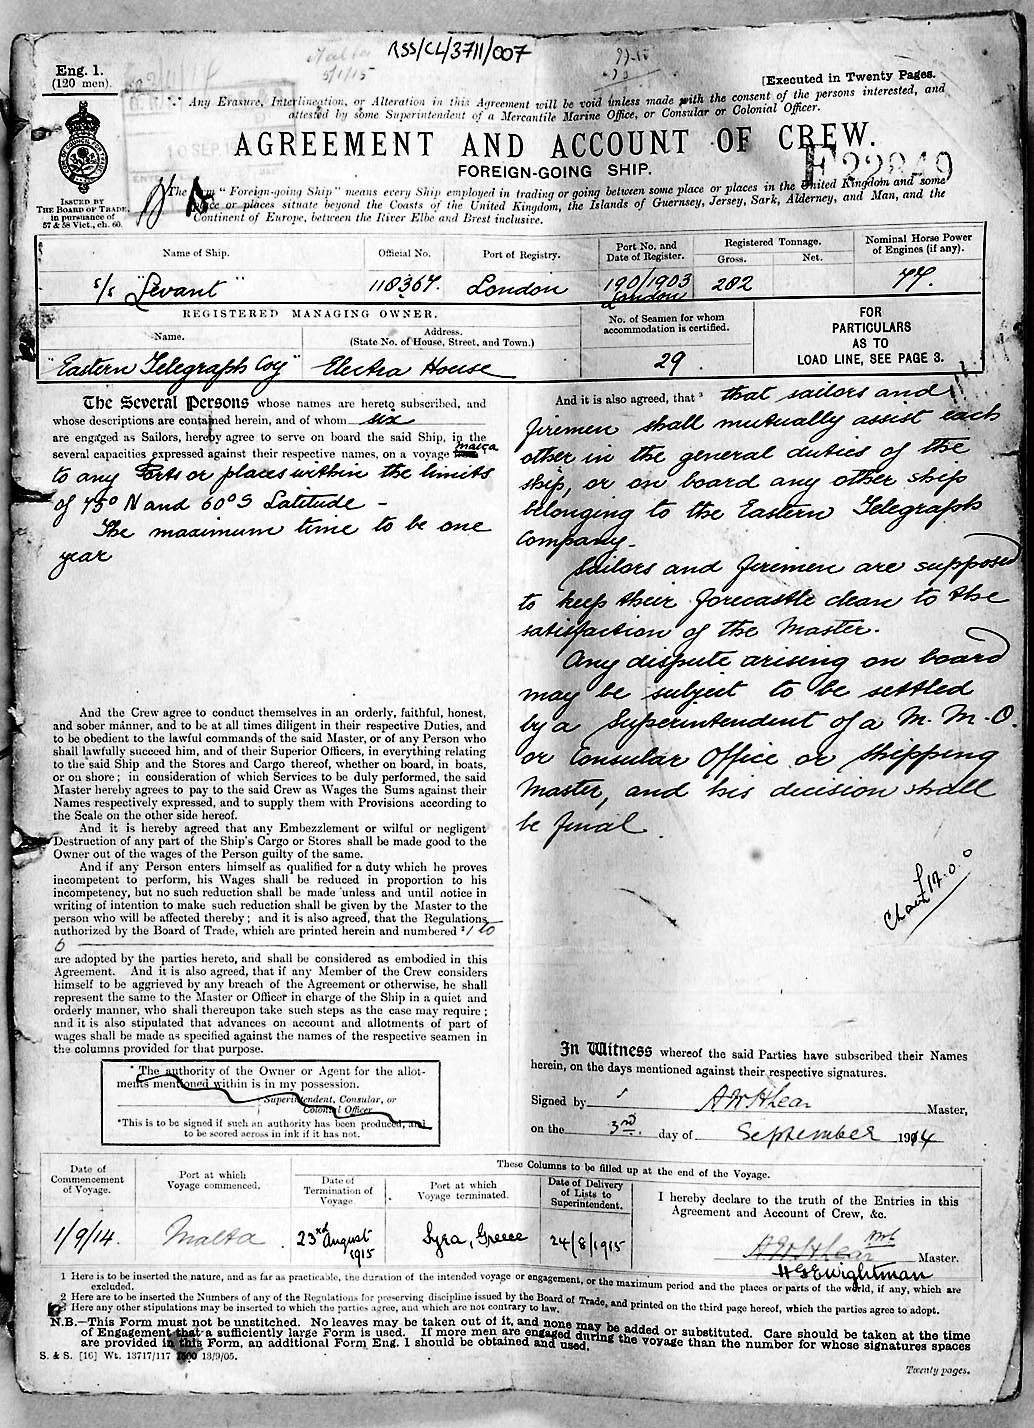 RSS/CL/3711/007
Malta
5/1/15
Eng. 1.
(120 men).
[Executed in Twenty Pages.
Any Erasure, Interlineation, or Alteration in this Agreement will be void unless made with the consent of the persons interested, and
attested by some Superintendent of a Mercantile Marine Office, or Consular or Colonial Officer.
AGREEMENT AND ACCOUNT OF CREW.
FOREIGN-GOING SHIP.
10 SEP
F22849
ISSUED BY
THE BOARD OF TRADE,
in pursuance of
57 & 58 Vict., ch. 60.
The term "Foreign-going Ship" means every Ship employed in trading or going between some place or places in the United Kingdom and some
place or places situate beyond the Coasts of the United Kingdom, the Islands of Guernsey, Jersey, Sark, Alderney, and Man, and the
Continent of Europe, between the River Elbe and Brest inclusive.
Name of Ship. Official No. Port of Registry. Port No. and Date of Register. Registered Tonnage. Gross. Net. Nominal Horse Power of Engines (if any).
s/s "Levant" 118367. London 190/1903 London 282 77.
REGISTERED MANAGING OWNER.
Name. Address. (State No. of House, Street, and Town.)
No. of Seamen for whom accommodation is certified.
FOR
PARTICULARS
AS TO
LOAD LINE, SEE PAGE 3.
"Eastern Telegraph Coy" Electra House 29.
The Several Persons whose names are hereto subscribed, and
whose descriptions are contained herein, and of whom six
are engaged as Sailors, hereby agree to serve on board the said Ship, in the
several capacities expressed against their respective names, on a voyage from Malta
to any Ports or places within the limits
of 75° N and 60° S Latitude -
The maximum time to be one
year
And the Crew agree to conduct themselves in an orderly, faithful, honest,
and sober manner, and to be at all times diligent in their respective Duties, and
to be obedient to the lawful commands of the said Master, or of any Person who
shall lawfully succeed him, and of their Superior Officers, in everything relating
to the said Ship and the Stores and Cargo thereof, whether on board, in boats,
or on shore; in consideration of which Services to be duly performed, the said
Master hereby agrees to pay to the said Crew as Wages the Sums against their
Names respectively expressed, and to supply them with Provisions according to
the Scale on the other side hereof.
And it is hereby agreed that any Embezzlement or wilful or negligent
Destruction of any part of the Ship's Cargo or Stores shall be made good to the
Owner out of the wages of the Person guilty of the same.
And if any Person enters himself as qualified for a duty which he proves
incompetent to perform, his Wages shall be reduced in proportion to his
incompetency, but no such reduction shall be made unless and until notice in
writing of intention to make such reduction shall be given by the Master to the
person who will be affected thereby; and it is also agreed, that the Regulations
authorized by the Board of Trade, which are printed herein and numbered ² 1 to
6
are adopted by the parties hereto, and shall be considered as embodied in this
Agreement. And it is also agreed, that if any Member of the Crew considers
himself to be aggrieved by any breach of the Agreement or otherwise, he shall
represent the same to the Master or Officer in charge of the Ship in a quiet and
orderly manner, who shall thereupon take such steps as the case may require;
and it is also stipulated that advances on account and allotments of part of
wages shall be made as specified against the names of the respective seamen in
the columns provided for that purpose.
* The authority of the Owner or Agent for the allot-
ments mentioned within is in my possession.
Superintendent, Consular, or
Colonial Officer
*This is to be signed if such an authority has been produced, and
to be scored across in ink if it has not.
And it is also agreed, that ³ that sailors and
firemen shall mutually assist each
other in the general duties of the
ship, or on board any other ship
belonging to the Eastern Telegraph
Company.
Sailors and firemen are supposed
to keep their forecastle clean to the
satisfaction of the Master.
Any dispute arising on board
may be subject to be settled
by a Superintendent of a M. M. O.
or Consular Office or Shipping
Master, and his decision shall
be final.
In Witness whereof the said Parties have subscribed their Names
herein, on the days mentioned against their respective signatures.
Signed by A W Hear Master,
on the 3rd. day of September 1914
Date of Commencement of Voyage. Port at which Voyage commenced.
These Columns to be filled up at the end of the Voyage.
Date of Termination of Voyage Port at which Voyage terminated. Date of Delivery of Lists to Superintendent.
I hereby declare to the truth of the Entries in this
Agreement and Account of Crew, &c.
1/9/14. Malta 23rd August 1915 Syra, Greece 24/8/1915
A W Hear Master.
H G Ewightman
1 Here is to be inserted the nature, and as far as practicable, the duration of the intended voyage or engagement, or the maximum period and the places or parts of the world, if any, which are
excluded.
2 Here are to be inserted the Numbers of any of the Regulations for preserving discipline issued by the Board of Trade, and printed on the third page hereof, which the parties agree to adopt.
3 Here any other stipulations may be inserted to which the parties agree, and which are not contrary to law.
N.B.—This Form must not be unstitched. No leaves may be taken out of it, and none may be added or substituted. Care should be taken at the time
of Engagement that a sufficiently large Form is used. If more men are engaged during the voyage than the number for whose signatures spaces
are provided in this Form, an additional Form Eng. 1 should be obtained and used.
S. & S. [16] Wt. 13717/117 1500 13/9/05.
Twenty pages.